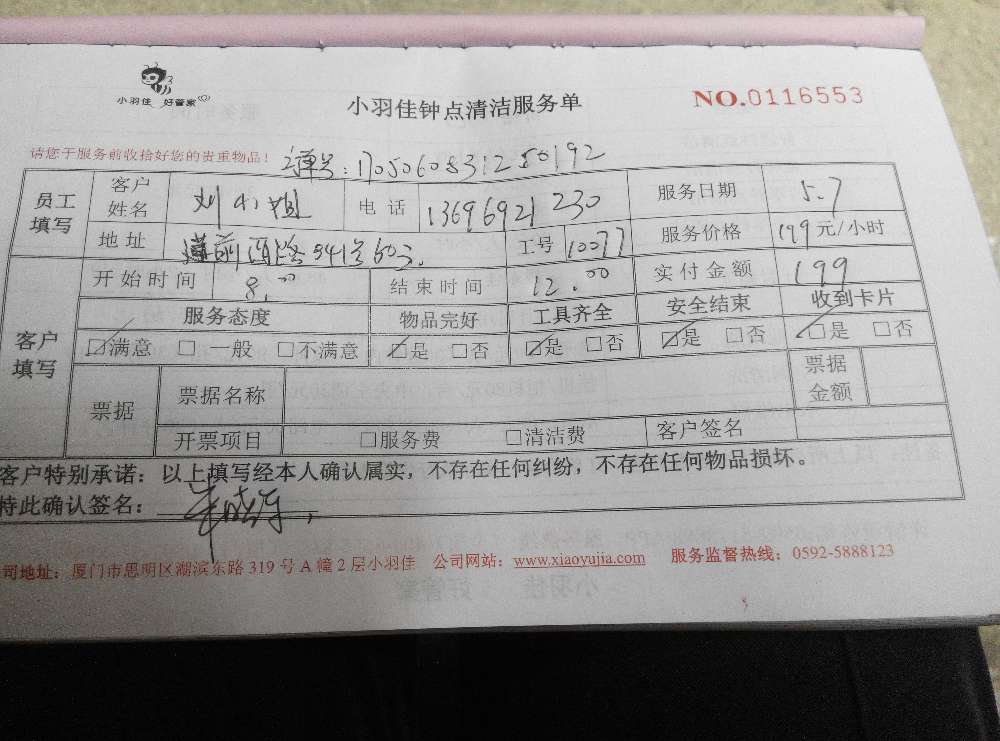 小羽佳 好管家
小羽佳钟点清洁服务单
NO.0116553
请您于服务前收拾好您的贵重物品！
单号：1705060831250192
员工填写 客户姓名 刘小姐 电话 13696921230 服务日期 5.7
地址 莲前西路541号603. 工号 10077 服务价格 199元/小时
客户填写 开始时间 8:00 结束时间 12:00 实付金额 199
服务态度 物品完好 工具齐全 安全结束 收到卡片
☑满意 □一般 □不满意 ☑是 □否 ☑是 □否 ☑是 □否 ☑是 □否
票据 票据名称 票据金额
开票项目 □服务费 □清洁费 客户签名
客户特别承诺：以上填写经本人确认属实，不存在任何纠纷，不存在任何物品损坏。
特此确认签名：
司地址：厦门市思明区湖滨东路319号A幢2层小羽佳 公司网站：www.xiaoyujia.com 服务监督热线：0592-5888123